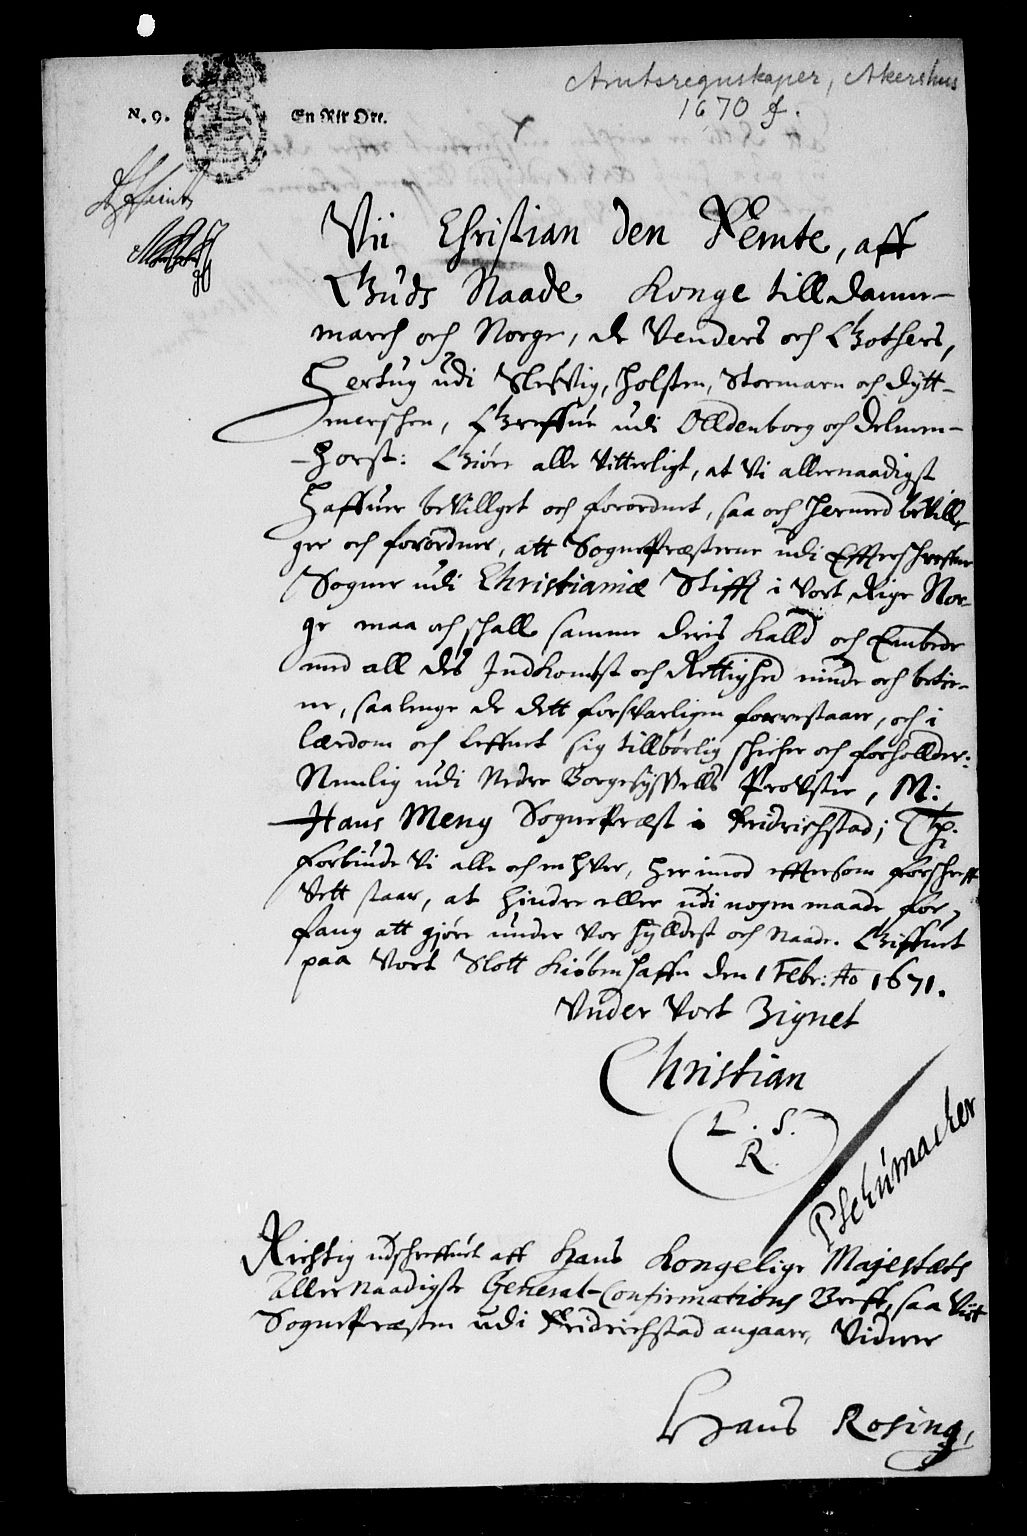 Amtsregnskaper, Akershus
1670 f.
N. 9. En Rix Ort.
Vii Christian den Femte, aff
Guds Naade Konge till Danne-
march och Norge, de Venders och Gothers,
Hertug udi Slesvig, Holsten, Stormarn och Dytt-
mershen, Greffue udi Olldenborg och Delmen-
-horst: Giøre alle vitterligt, at Vi allernaadigst
haffuer bevillget och forordnet, saa och hermed beville-
ger och forordner, att Sognepræsterne udi Effterschreffne
Sogner udi Christianiæ Stifft i Vort Rige Nor-
ge maa och schall samme deris Kalld och Embede
med all des Indkombst och Rettighed niude och betie-
ne, saalenge de dett forsvarligen forrestaar, och i
lærdom och Leffnet sig tillbørlig schicher och forhollder:
Nemlig udi Nedre Borgesyssells Provstie, M:
Hans Meng Sognepræst i Fridrichstad; Thj
forbiude Vi alle och en hver, her imod effter som forschreff-
vett staar, at hindre eller udi nogen maade for-
fang att gjøre under vor hylldest och Naade. Giffuet
paa Vort Slott Kiøbenhaffn den 1 Febr: Ao 1671.
Under Vort Zignet
Christian
L. S.
R.
PSchumacher
Richtig udschreffuet aff Hans Kongelige Majestæts
Aller Naadigste General-Confirmations Breff, saa vit
Sognepræsten udi Fridrichstad angaar, Vidner
Hans Rosing,